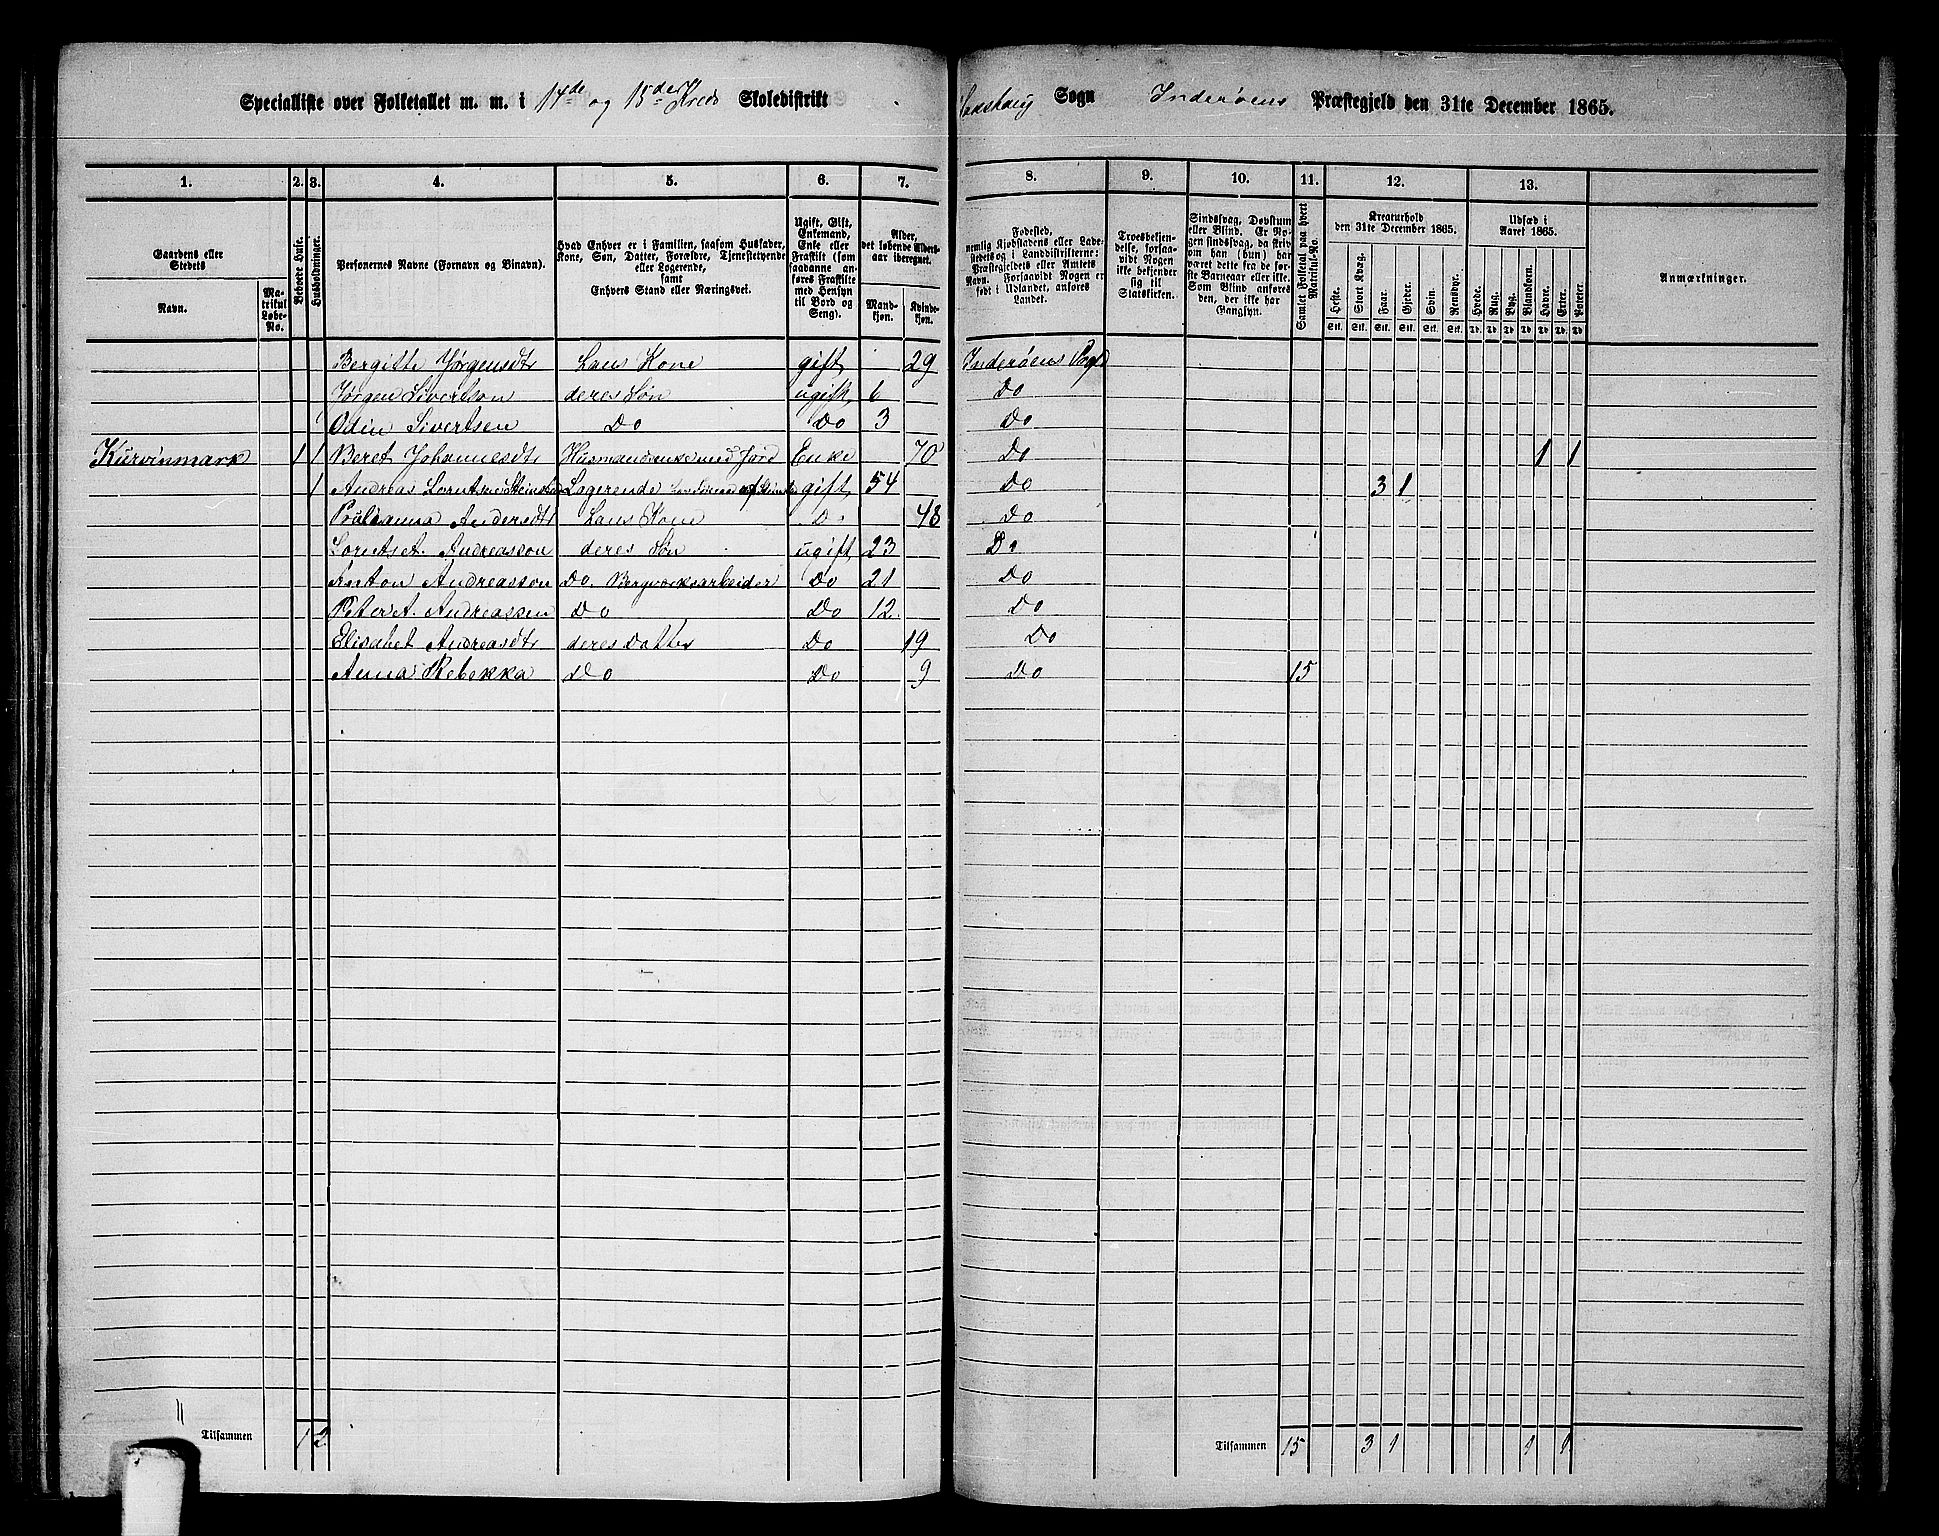 Specialliste over Folketallet m. m. i 14de og 15de Kreds Skoledistrikt
Sogn Inderøens Præstegjeld den 31te December 1865.
1. 2. 3. 4. 5. 6. 7. 8. 9. 10. 11. 12. 13.
Gaardens eller Stedets
Navn.
Matrikul Løbe-No.
Beboede Huse.
Husholdninger.
Personernes Navne (Fornavn og Binavn).
Hvad Enhver er i Familien, saasom Husfader, Kone, Søn, Datter, Forældre, Tjenestetyende eller Logerende,
samt
Enhvers Stand eller Næringsvei.
Ugift, Gift, Enkemand, Enke eller Fraskilt (som saadanne anføres Fraskilte med Hensyn til Bord og Seng).
Alder, det løbende Aldersaar iberegnet.
Mandkjøn. Kvindekjøn.
Fødested, nemlig Kjøbstadens eller Ladestedets og i Landdistrikterne: Præstegjeldets eller Amtets Navn. Forsaavidt Nogen er født i Udlandet, anføres Landet.
Troesbekjendelse, forsaavidt Nogen ikke bekjender sig til Statskirken.
Sindssvag, Døvstum eller Blind. Er Nogen sindssvag, da skriv om han (hun) har været dette fra de første Barneaar eller ikke. Som Blind anføres den, der ikke har Gangsyn.
Samlet Folketal paa hvert Matrikul-No.
Kreaturhold den 31te December 1865.
Heste. Stort Kvæg. Faar. Gjeder. Svin. Rensdyr.
Stk. Stk. Stk. Stk. Stk. Stk.
Udsæd i Aaret 1865.
Hvede. Rug. Byg. Blandkorn. Havre. Erter. Poteter.
Anmærkninger.
Bergitte Jørgensdtr Hans Kone gift 29 Inderøens
Jørgen Sivertsen deres Søn ugift 6 Do
Odin Sivertsen Do Do 3 Do
Kurvinmark 1 1 Beret Johannesdtr Husmandsenke med Jord Enke 70 Do 1 1
1 Andreas Lorntsen Logerende gift 54 Do 3 1
Andersdtr Hans Kone Do 48 Do
Andreasson deres Søn ugift 23 Do
Anton Andreasson Do. Bergværksarbeider Do 21 Do
Peter A. Andreassen Do Do 12. Do
Elisabet Andreasdtr deres Datter Do 19 Do
Anna Rebekka Do Do 9 Do 15
Tilsammen 1 2
Tilsammen 15 3 1 1 1